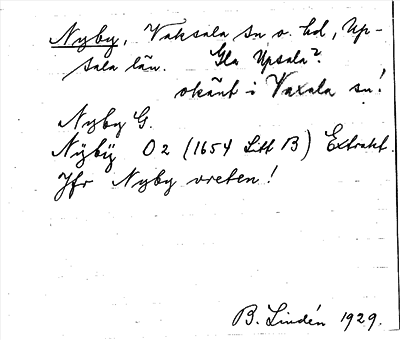 Nyby, Vaksala sn o. hd, Up-
sala län. Gla Upsala?
okänt i Vaxala sn!
Nyby G.
Nÿbÿ O 2 (1654 Litt B) Extrakt.
Jfr Nyby vreten!
B. Lindén 1929.